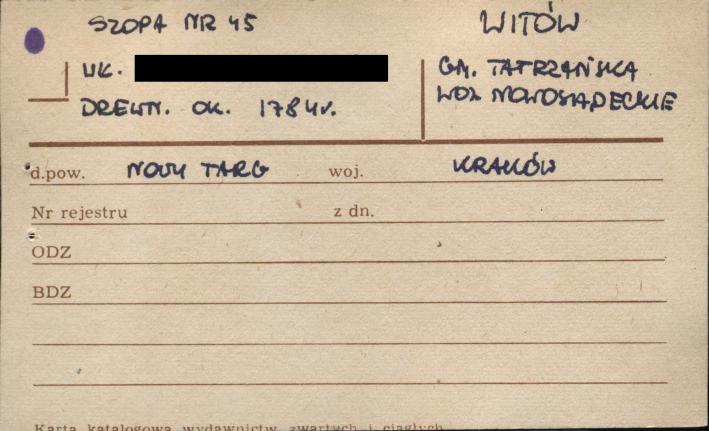 SZOPA NR 45
WITÓW
WŁ.
GM. TATRZAŃSKA
DREWN. OK. 1784r.
WOJ. NOWOSĄDECKIE
d.pow. NOWY TARG woj. KRAKÓW
Nr rejestru z dn.
ODZ
BDZ
Karta katalogowa wydawnictw zwartych i ciągłych